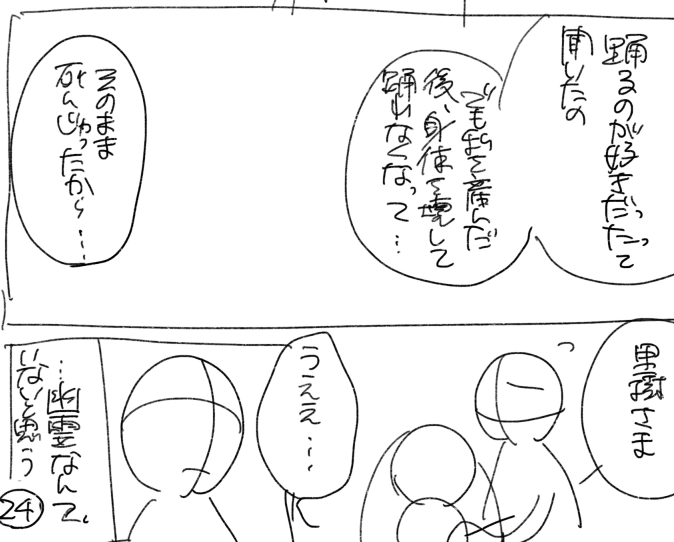 踊るのが好きだったって
聞いたの
でも私を産んだ
後、身体を壊して
踊れなくなって…
そのまま
死んじゃったから…
里樹さま
うええ…
…幽霊なんて、
いないと思う
24